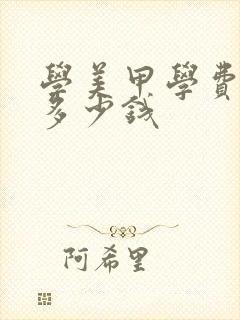 學美甲學費
多少錢
阿希里